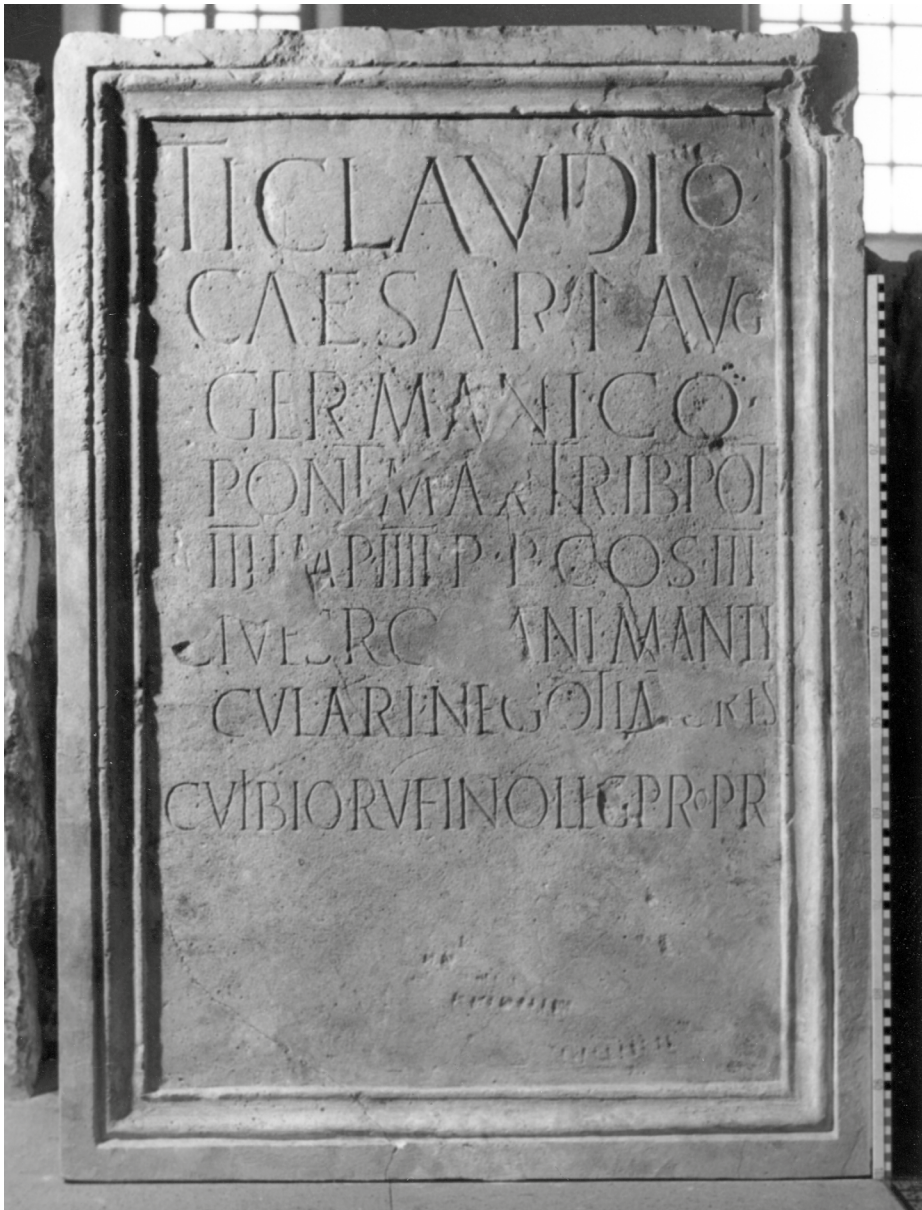 TI CLAVDIO
CAESARI AVG
GERMANICO
PONT MAX TRIB POT
IIII IMP IIII P P COS III
CIVES RO ANI MANTI
CVLARI NEGOTIATORES
C VIBIO RVFINO LEG PRO PR